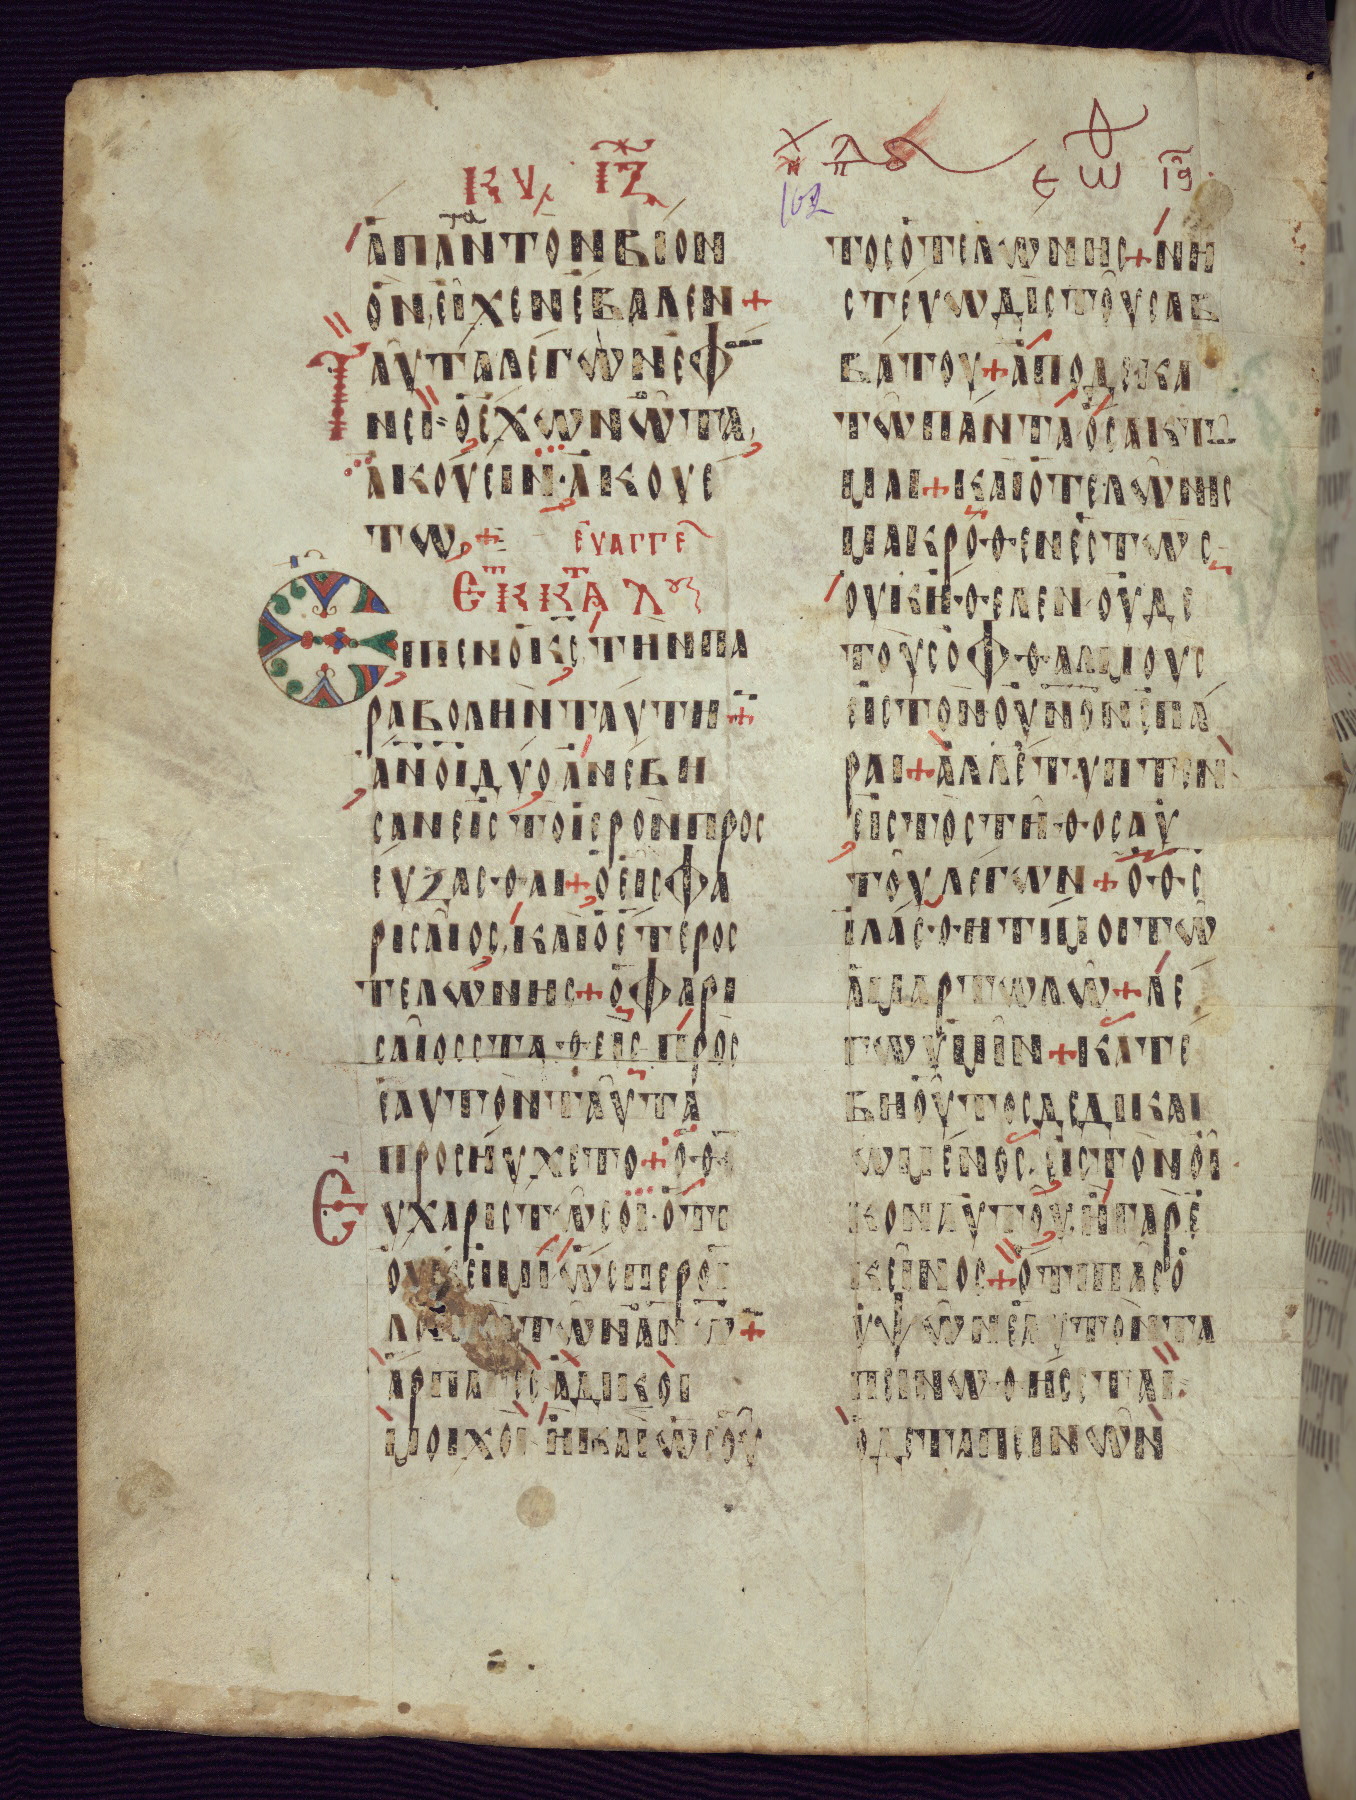 ΚΥ ΙΖ
ΑΠΑΝΤΟΝΒΙΟΝ
ΟΝΕΙΧΕΝΕΒΑΛΕΝ+
ΤΑΥΤΑΛΕΓΩΝΕΦΩ
ΝΕΙ·ΟΕΧΩΝΩΤΑ
ΑΚΟΥΕΙΝ·ΑΚΟΥΕ
ΤΩ+ ΕΥΑΓΓΕ
ΕΚ ΚΑΤΑ Λ
ΕΙΠΕΝΟΚΣΤΗΝΠΑ
ΡΑΒΟΛΗΝΤΑΥΤΗ+
ΑΝΟΙΔΥΟΑΝΕΒΗ
ΣΑΝΕΙΣΤΟΙΕΡΟΝΠΡΟΣ
ΕΥΞΑΣΘΑΙ+ΟΕΙΣΦΑ
ΡΙΣΑΙΟΣ,ΚΑΙΟΕΤΕΡΟΣ
ΤΕΛΩΝΗΣ+ΟΦΑΡΙ
ΣΑΙΟΣΣΤΑΘΕΙΣΠΡΟΣ
ΕΑΥΤΟΝΤΑΥΤΑ
ΠΡΟΣΗΥΧΕΤΟ+ΟΘΣ
ΕΥΧΑΡΙΣΤΩΣΟΙ·ΟΤΙ
ΟΥΚΕΙΜΙΩΣΠΕΡΟΙ
ΛΟΙΠΟΙΤΩΝΑΝΩΝ+
ΑΡΠΑΓΕΣΑΔΙΚΟΙ
ΜΟΙΧΟΙΗΚΑΙΩΣΟΥ
ΤΟΣΟΤΕΛΩΝΗΣ+ΝΗ
ΣΤΕΥΩΔΙΣΤΟΥΣΑΒ
ΒΑΤΟΥ+ΑΠΟΔΕΚΑ
ΤΩΠΑΝΤΑΟΣΑΚΤΩ
ΜΑΙ+ΚΑΙΟΤΕΛΩΝΗΣ
ΜΑΚΡΟΘΕΝΕΣΤΩΣ
ΟΥΚΗΘΕΛΕΝ·ΟΥΔΕ
ΤΟΥΣΟΦΘΑΛΜΟΥΣ
ΕΙΣΤΟΝΟΥΝΟΝΕΠΑ
ΡΑΙ+ΑΛΛΕΤΥΠΤΕΝ
ΕΙΣΤΟΣΤΗΘΟΣΑΥ
ΤΟΥΛΕΓΩΝ+ΟΘΣ
ΙΛΑΣΘΗΤΙΜΟΙΤΩ
ΑΜΑΡΤΩΛΩ+ΛΕ
ΓΩΥΜΙΝ+ΚΑΤΕ
ΒΗΟΥΤΟΣΔΕΔΙΚΑΙ
ΩΜΕΝΟΣ,ΕΙΣΤΟΝΟΙ
ΚΟΝΑΥΤΟΥ,ΗΓΑΡΕ
ΚΕΙΝΟΣ+ΟΤΙΠΑΣΟ
ΥΨΩΝΕΑΥΤΟΝΤΑ
ΠΕΙΝΩΘΗΣΕΤΑΙ·
ΟΔΕΤΑΠΕΙΝΩΝ